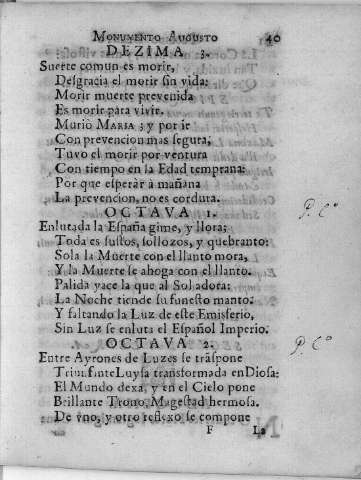 MONUMENTO AUGUSTO 40
DEZIMA 3.
Suerte comun es morir,
Desgracia el morir sin vida:
Morir muerte prevenida
Es morir para vivir.
Muriò MARIA; y por ir
Con prevencion mas segura,
Tuvo el morir por ventura
Con tiempo en la Edad temprana:
Por que esperàr à mañana
La prevencion, no es cordura.
OCTAVA 1.
Enlutada la España gime, y llora;
Toda es sustos, sollozos, y quebranto:
Sola la Muerte con el llanto mora,
Y la Muerte se ahoga con el llanto.
Palida yace la que al Sol adora:
La Noche tiende su funesto manto:
Y faltando la Luz de este Emisferio,
Sin Luz se enluta el Español Imperio.
OCTAVA 2.
Entre Ayrones de Luzes se trãspone
Triunfante Luysa transformada en Diosa:
El Mundo dexa, y en el Cielo pone
Brillante Trono, Magestad hermosa.
De vno, y otro reflexo se compone
F La
P. Co
P. Co